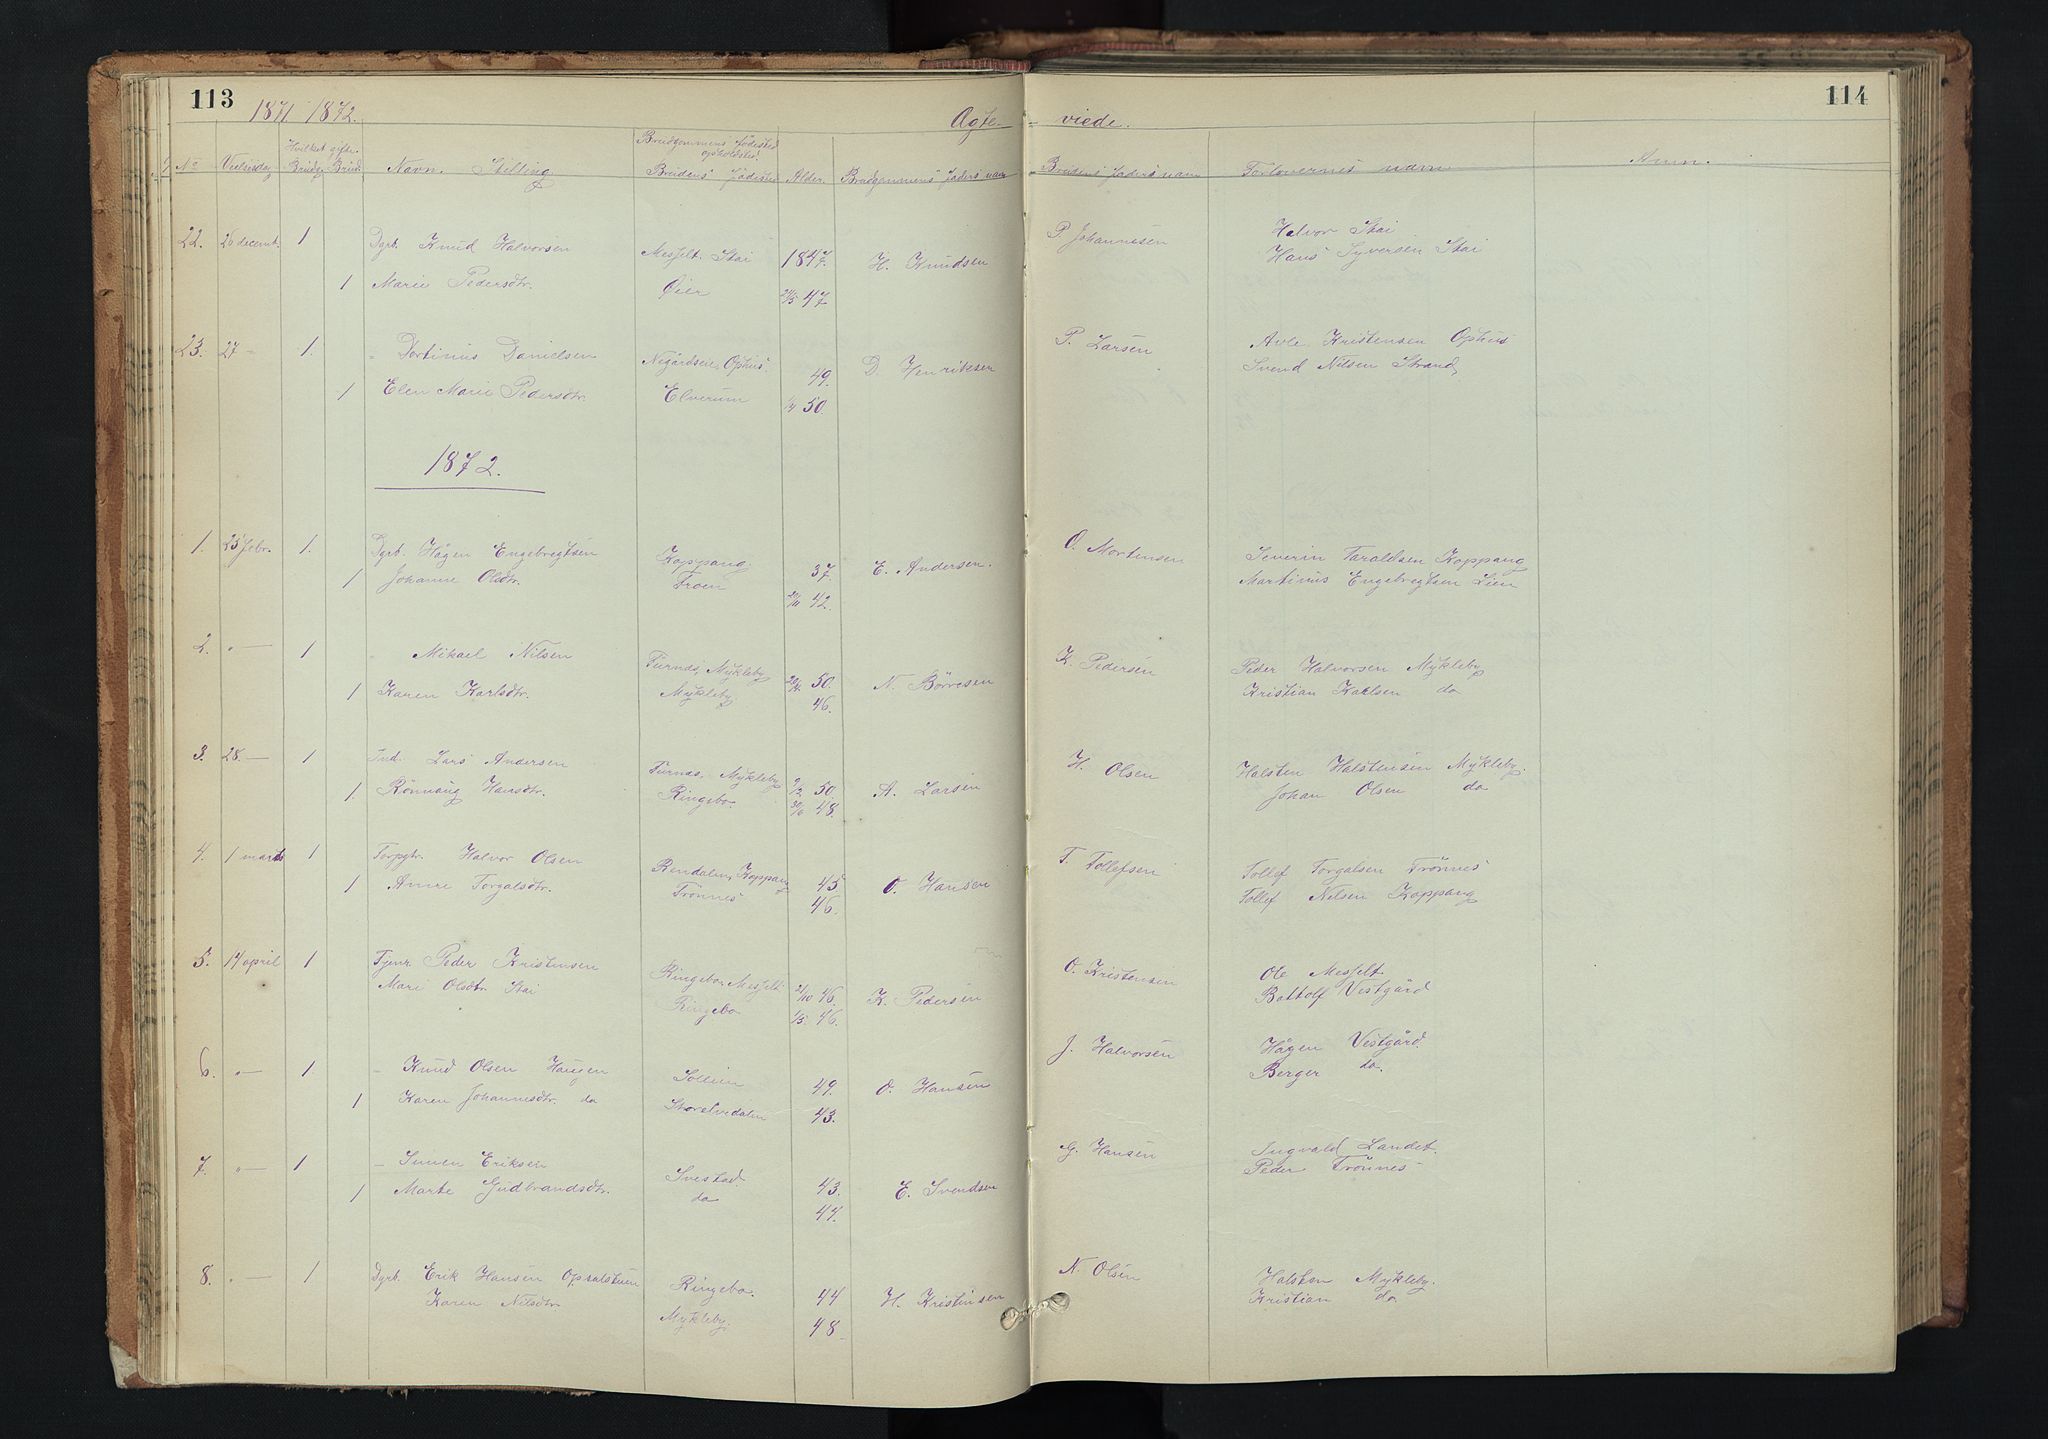 113
1871 1872.
Ægte
No Vielsesdag Hvilket gifte. Brudg Brud. Navn. Stilling Brudgommens Fødested opholdssted. Brudens Fødested Alder. Brudgommens faders navn
22. 26 decemb. 1 Dgrb. Knud Halvorsen Messelt. Stai 1847. H. Knudsen
1 Marie Pedersdtr. Øier 24/5 47
23. 27 - 1. - Danielsen Ophus. 49. D. Henriksen
1 Elen Marie Pedersdtr. Elverum 50.
1872.
1. 25 febr. 1. Dgrb. Hågen Engebregtsen Koppang. 37. E. Andersen.
1 Johanne Olsdtr. Froen 42.
2. " — 1 - Mikael Nilsen Furnæs, Mykleby 50. N. Börresen
1 Karen Karlsdtr. Mykleby 46.
3. 28. — 1 Ind. Lars Andersen Furnæs, Mykleby 9/2 50 A. Larsen
1. Rönnaug Hansdtr. Ringebo. 30/6 48.
4. 1 marts 1 Halvor Olsen Rendalen, Koppang 45 O. Hansen
1 Anne Torgalsdtr. Trönnes 46.
5. 14 april 1 Tjenr. Peder Kristensen Ringebo, Messelt. 21/10 46. K. Pedersen
Mari Olsdtr. Stai Ringebo 1/5. 46.
6. " — 1. - Knud Olsen Haugen Sollien 49. O. Hansen
1 Karen Johannesdtr. do Storelvedalen 43.
7. " — 1 - Simen Eriksen 43. E. Svendsen
1 Marte Gudbrandsdtr. do 47.
8. " — 1 Dgrb. Erik Hansen Opsalstuen Ringebo. 44 H. Kristensen
Karen Nilsdtr. Mykleby. 48
114
viede.
Brudens faders navn Forlovernes navn Anm.
P. Johannesen Halvor Stai
Hans Syversen Stai
P. Larsen Kristensen Ophus
Svend Nilsen Strand
O. Mortensen Severin Taraldsen Koppang
Martinus Engebregtsen Lien
K. Pedersen Peder Halvorsen Mykleby
Kristian Karlsen do
H. Olsen Halsten Halstensen Mykleby.
Johan Olsen do
T. Tollefsen Tollef Torgalsen Trönnes
Tollef Nilsen Koppang
O. Kristensen Ole Messelt
Bottolf Vestgård
J. Halvorsen Hågen Vestgård.
Berger do.
G. Hansen Ingvald Landet.
Peder Trönnes
N. Olsen Halsten Mykleby.
Kristian do